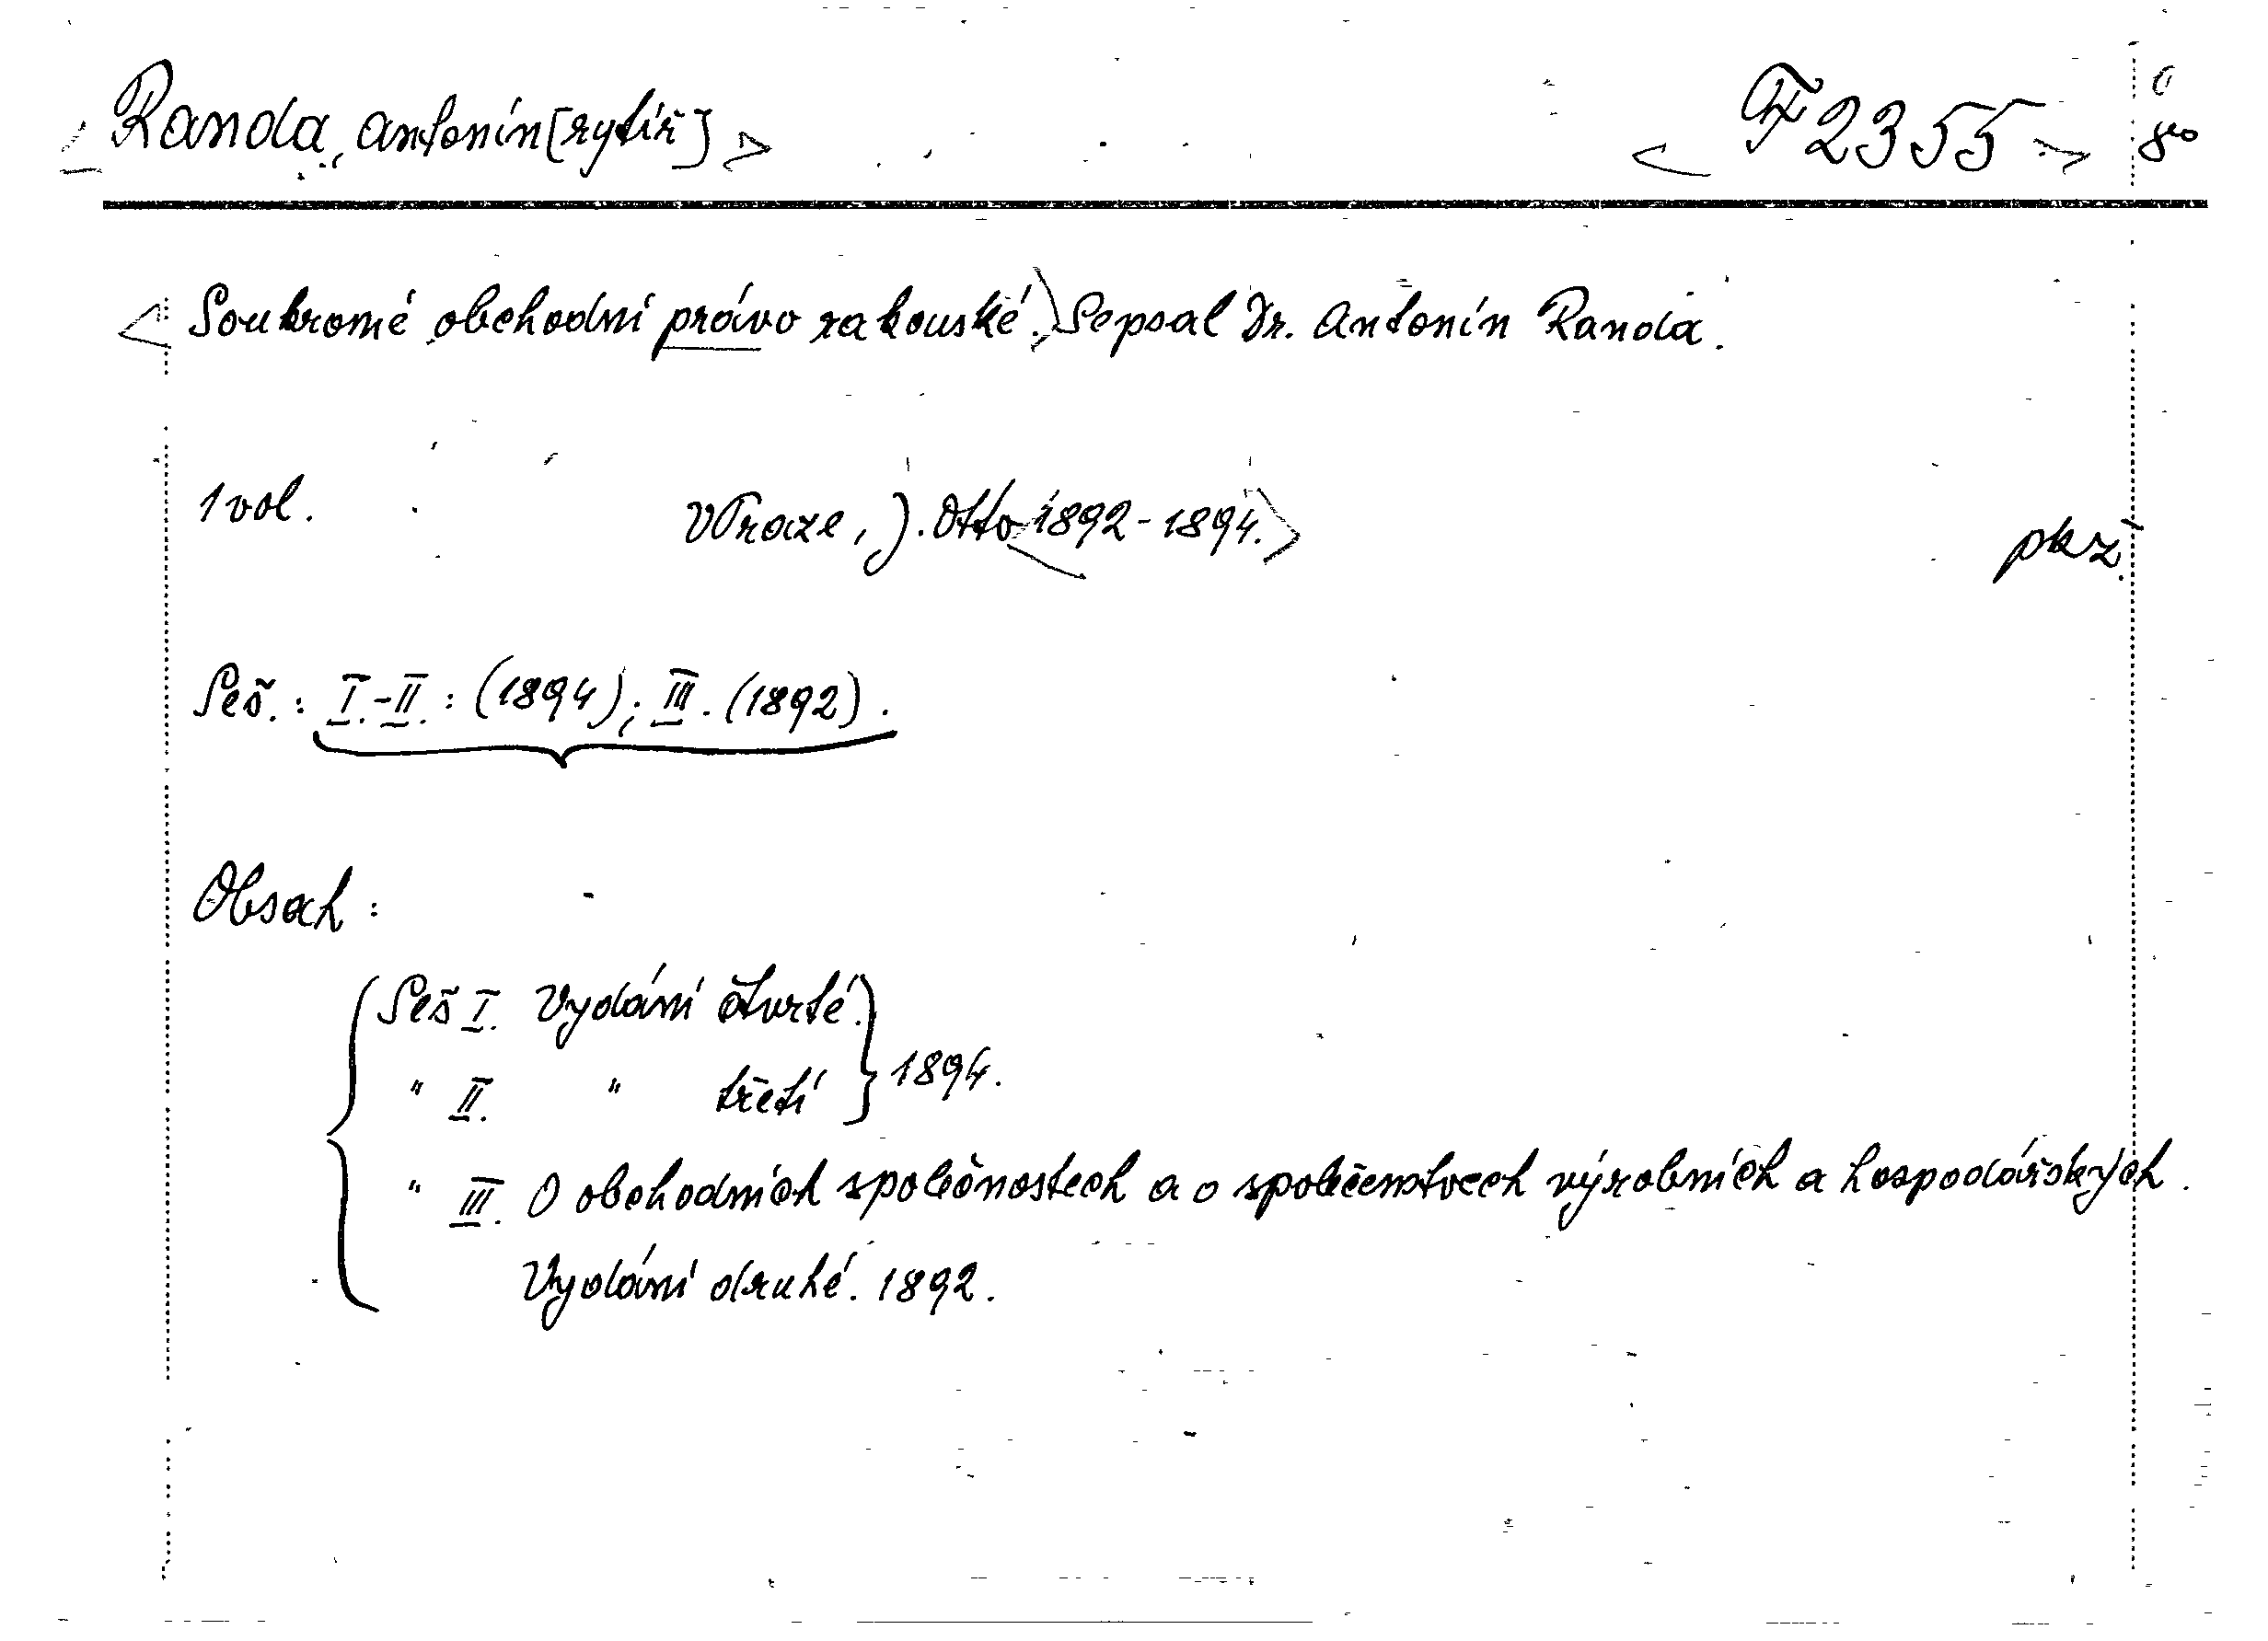 Randa, Antonín [rytíř] F 2355 8°
Soukromé obchodní právo rakouské. Sepsal Dr. Antonín Randa.
1 vol. V Praze, J. Otto 1892-1894. pkž.
Seš.: I.-II.: (1894); III. (1892).
Obsah:
Seš I. Vydání čtvrté.
" II. " třetí } 1894.
" III. O obchodních společnostech a o společenstvech výrobních a hospodářských.
Vydání druhé. 1892.